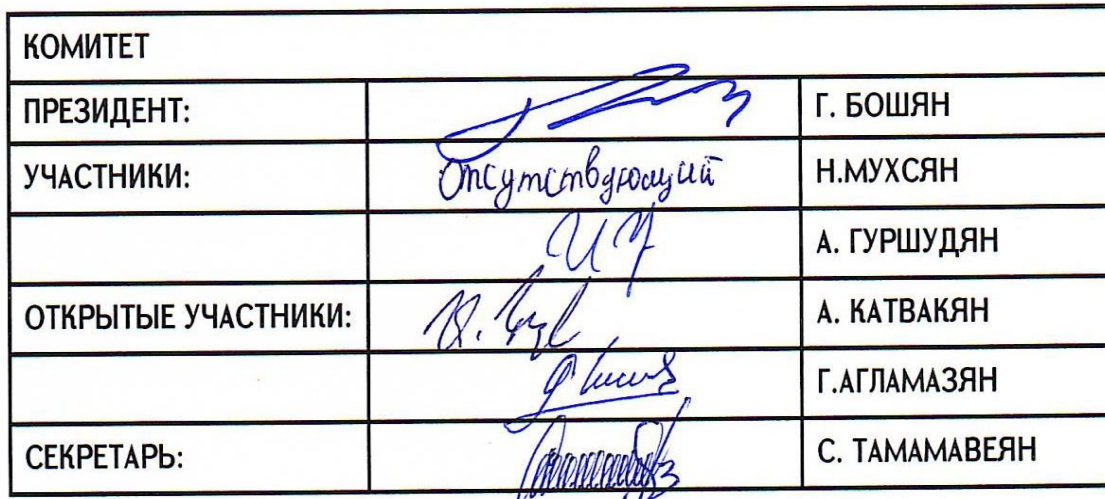 КОМИТЕТ
ПРЕЗИДЕНТ: Г. БОШЯН
УЧАСТНИКИ: Отсутствующий Н.МУХСЯН
А. ГУРШУДЯН
ОТКРЫТЫЕ УЧАСТНИКИ: А. КАТВАКЯН
Г.АГЛАМАЗЯН
СЕКРЕТАРЬ: С. ТАМАМАВЕЯН